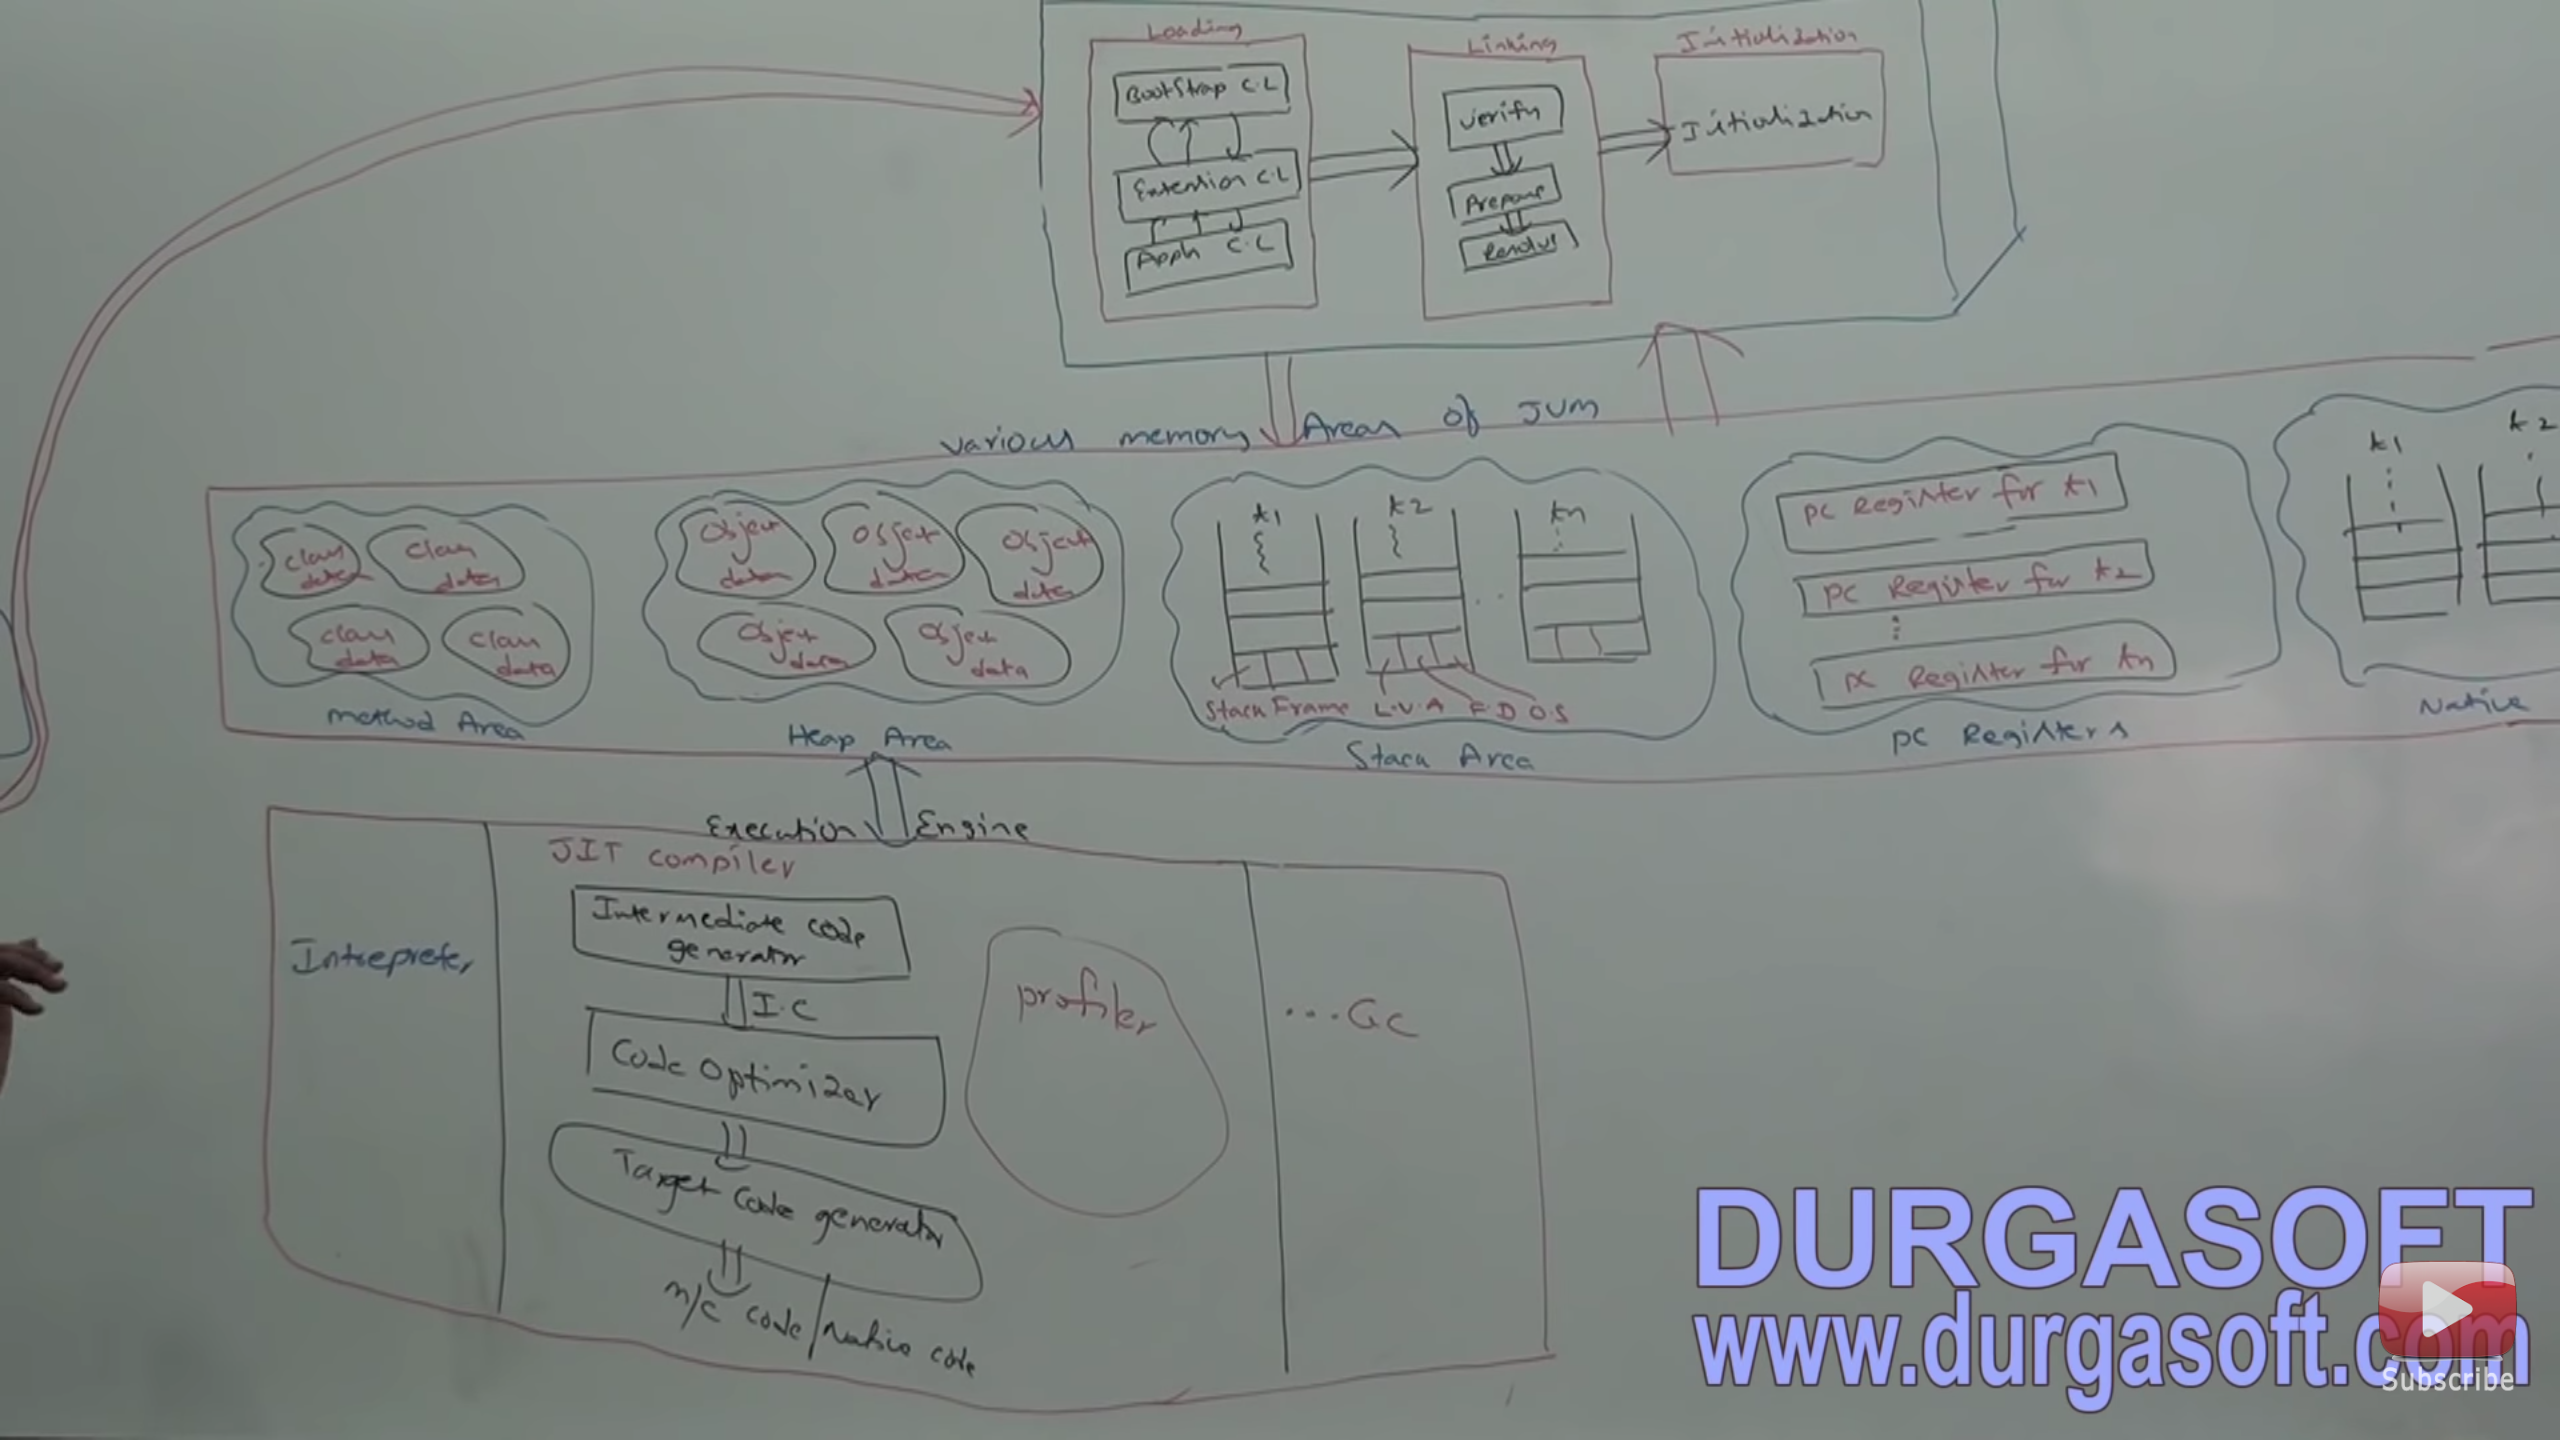 Loading
Bootstrap C.L
Extention C.L
Appln C.L
Linking
Verify
Prepare
Resolve
Initialization
Initialization
Various memory Areas of JVM
class data
class data
class data
class data
Method Area
Object data
Object data
Object data
Object data
Object data
Heap Area
t1
t2
tn
Stack Frame L.V.A F.D O.S
Stack Area
PC Register for t1
PC Register for t2
PC Register for tn
PC Registers
t1
t2
Native
Execution Engine
Intrepreter
JIT compiler
Intermediate code
generator
I.C
Code Optimizer
Target Code generator
m/c code/Native code
profiler
...GC
DURGASOFT
www.durgasoft.com
Subscribe